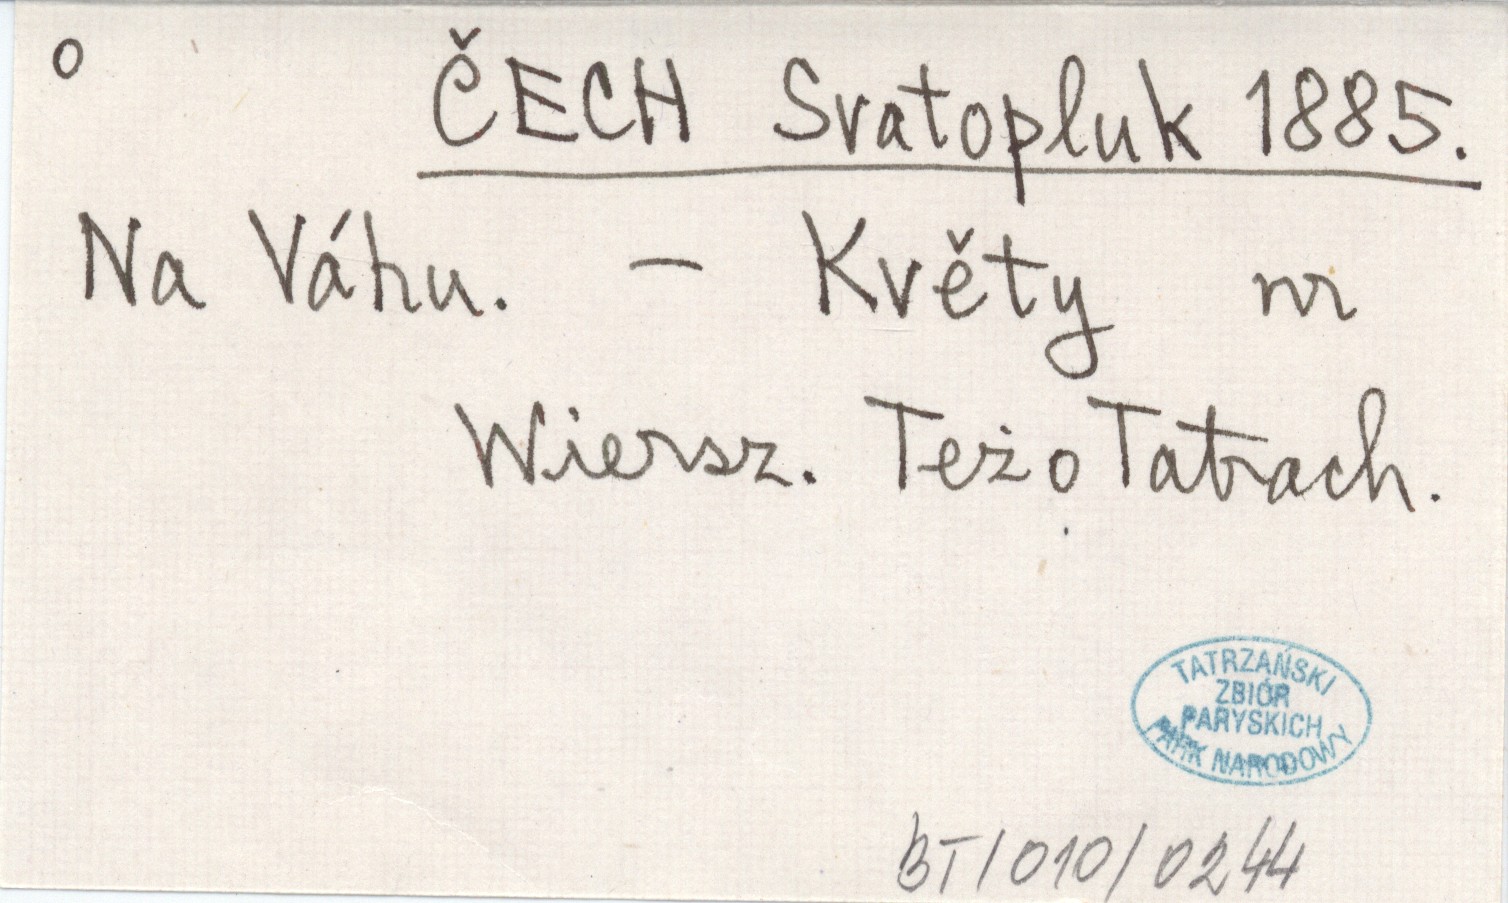 o
ČECH Svatopluk 1885.
Na Váhu. – Květy nr
Wiersz. Też o Tatrach.
TATRZAŃSKI
ZBIÓR
PARYSKICH
PARK NARODOWY
BT/010/0244